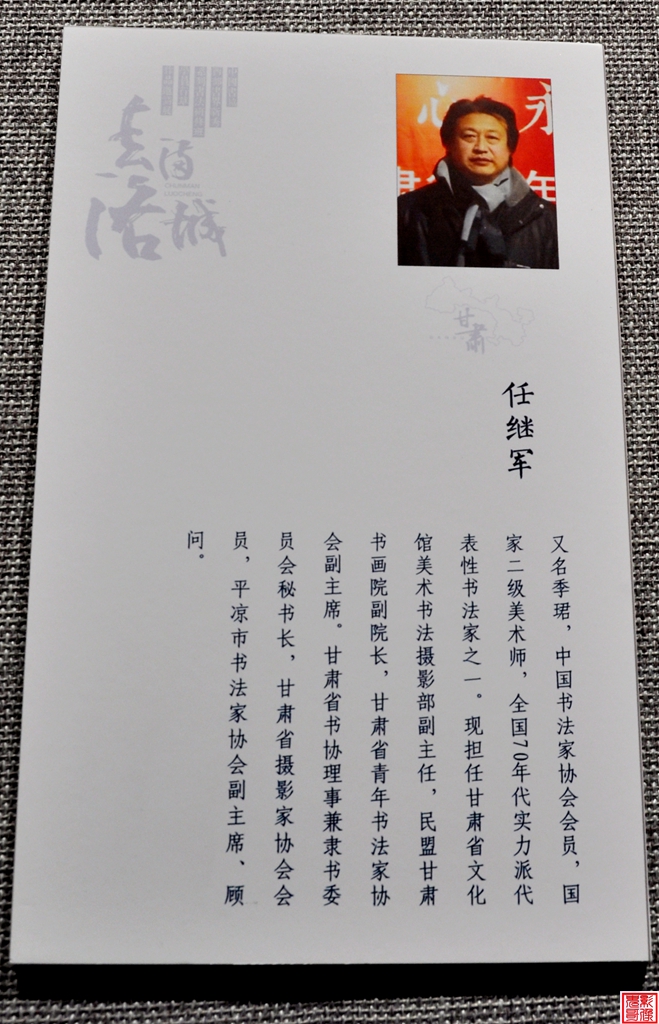 春满
洛城
CHUNMAN
LUOCHENG
心 永
肃省 年
甘肃
任继军
又名季珺，中国书法家协会会员，国
家二级美术师，全国70年代实力派代
表性书法家之一。现担任甘肃省文化
馆美术书法摄影部副主任，民盟甘肃
书画院副院长，甘肃省青年书法家协
会副主席。甘肃省书协理事兼隶书委
员会秘书长，甘肃省摄影家协会会
员，平凉市书法家协会副主席、顾
问。